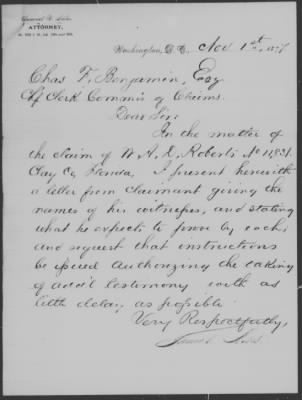 ATTORNEY,
Washington, D. C. Nov 1st 1877
Chas F. Benjamin, Esq
Chf Clerk Commis of Claims.
Dear Sir:
In the matter of
the claim of W. A. D. Roberts No 11,831
Clay Co, Florida, I present herewith
a letter from claimant giving the
names of his witnesses, and stating
what he expects to prove by each,
and request that instructions
be issued authorizing the taking
of add'l testimony with as
little delay as possible
Very Respectfully,